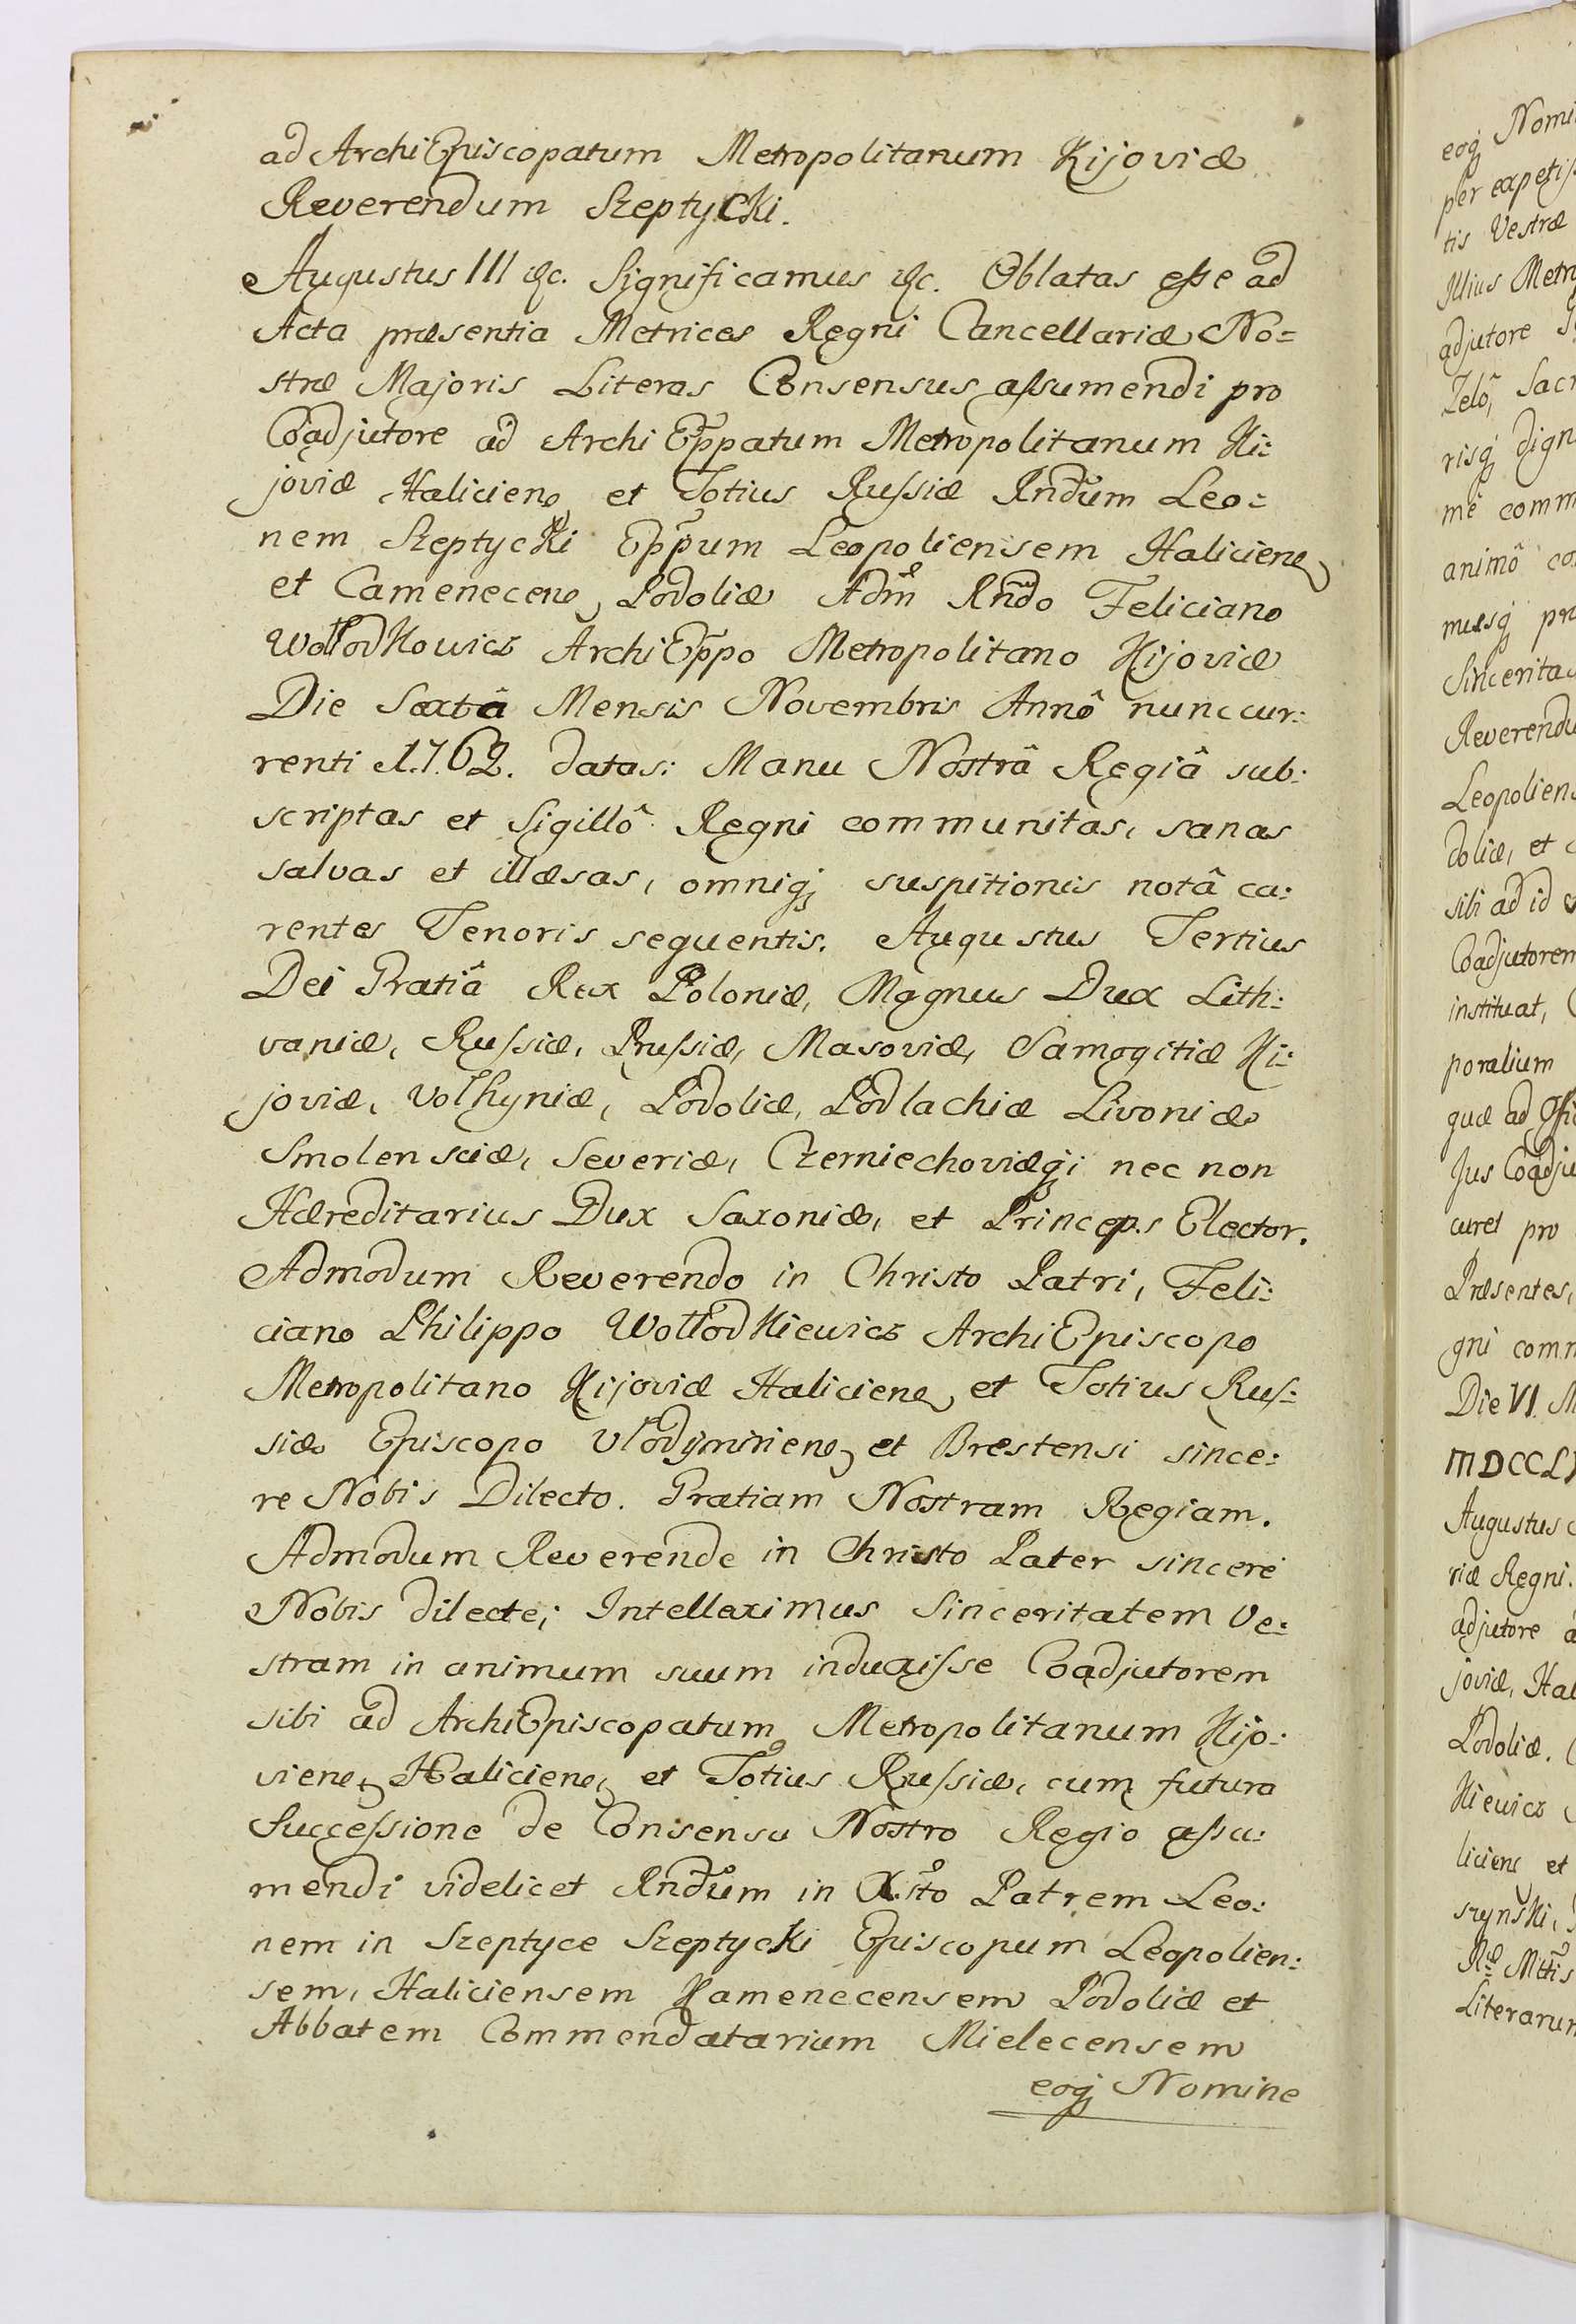 ad ArchiEpiscopatum Metropolitanum Kijoviæ
Reverendum Szeptycki.
Augustus III &c. Significamus &c. Oblatas esse ad
Acta præsentia Metrices Regni Cancellariæ No=
stræ Majoris Literas Consensus assumendi pro
Coadjutore ad Archi Epp̃atum Metropolitanum Ki=
joviæ Haliciens et Totius Russiæ Rndum Leo=
nem Szeptycki Epp̃um Leopoliensem Haliciens
et Camenecens Podoliæ Adm Rndo Feliciano
Wołłodkowicz ArchiEpp̃o Metropolitano Kijoviæ
Die Sextâ Mensis Novembris Annô nunc cur:
renti 1762. datas: Manu Nostrâ Regiâ sub:
scriptas et Sigillô Regni communitas, sanas
salvas et illæsas, omniqꝫ suspitionis notâ ca:
rentes Tenoris sequentis. Augustus Tertius
Dei Gratiâ Rex Poloniæ, Magnus Dux Lith:
vaniæ, Russiæ, Prussiæ, Masoviæ, Samogitiæ Ki:
joviæ, Volhyniæ, Podoliæ, Podlachiæ Livoniæ
Smolensciæ, Severiæ, Czerniechoviæqꝫ nec non
Hæreditarius Dux Saxoniæ, et Princeps Elector.
Admodum Reverendo in Christo Patri, Feli:
ciano Philippo Wołłodkiewicz ArchiEpiscopo
Metropolitano Kijoviæ Haliciens et Totius Rus:
siæ Episcopo Vlodymiriens et Brestensi since:
re Nobis Dilecto. Gratiam Nostram Regiam.
Admodum Reverende in Christo Pater sincere
Nobis dilecte; Intelleximus Sinceritatem Ve:
stram in animum suum induxisse Coadjutorem
sibi ad ArchiEpiscopatum Metropolitanum Kijo:
viens Haliciens et Totius Russiæ, cum futura
Successione de Consensu Nostro Regio assu:
mendi videlicet Rndum in Xsto Patrem Leo:
nem in Szeptyce Szeptycki Episcopum Leopolien:
sem, Haliciensem Kamenecensem Podoliæ et
Abbatem Commendatarium Mielecensem
eoqꝫ Nomine
eoqꝫ Nomi
per expetis
tis Vestræ
Illius Metr
adjutore
Zelô, Sacr
risqꝫ dign
me comm
animô co
musqꝫ pr
Sincerita
Reverendu
Leopoliens
doliæ, et
sibi ad id
Coadjutorem
instituat,
poralium
quæ ad Offi
Jus Coadju
curet pro
Præsentes,
gni comm
Die VI. M
MDCCL
Augustus
riæ Regni.
adjutore a
joviæ, Hal
Podoliæ.
kiewicz
liciens et
szynski,
Literarum